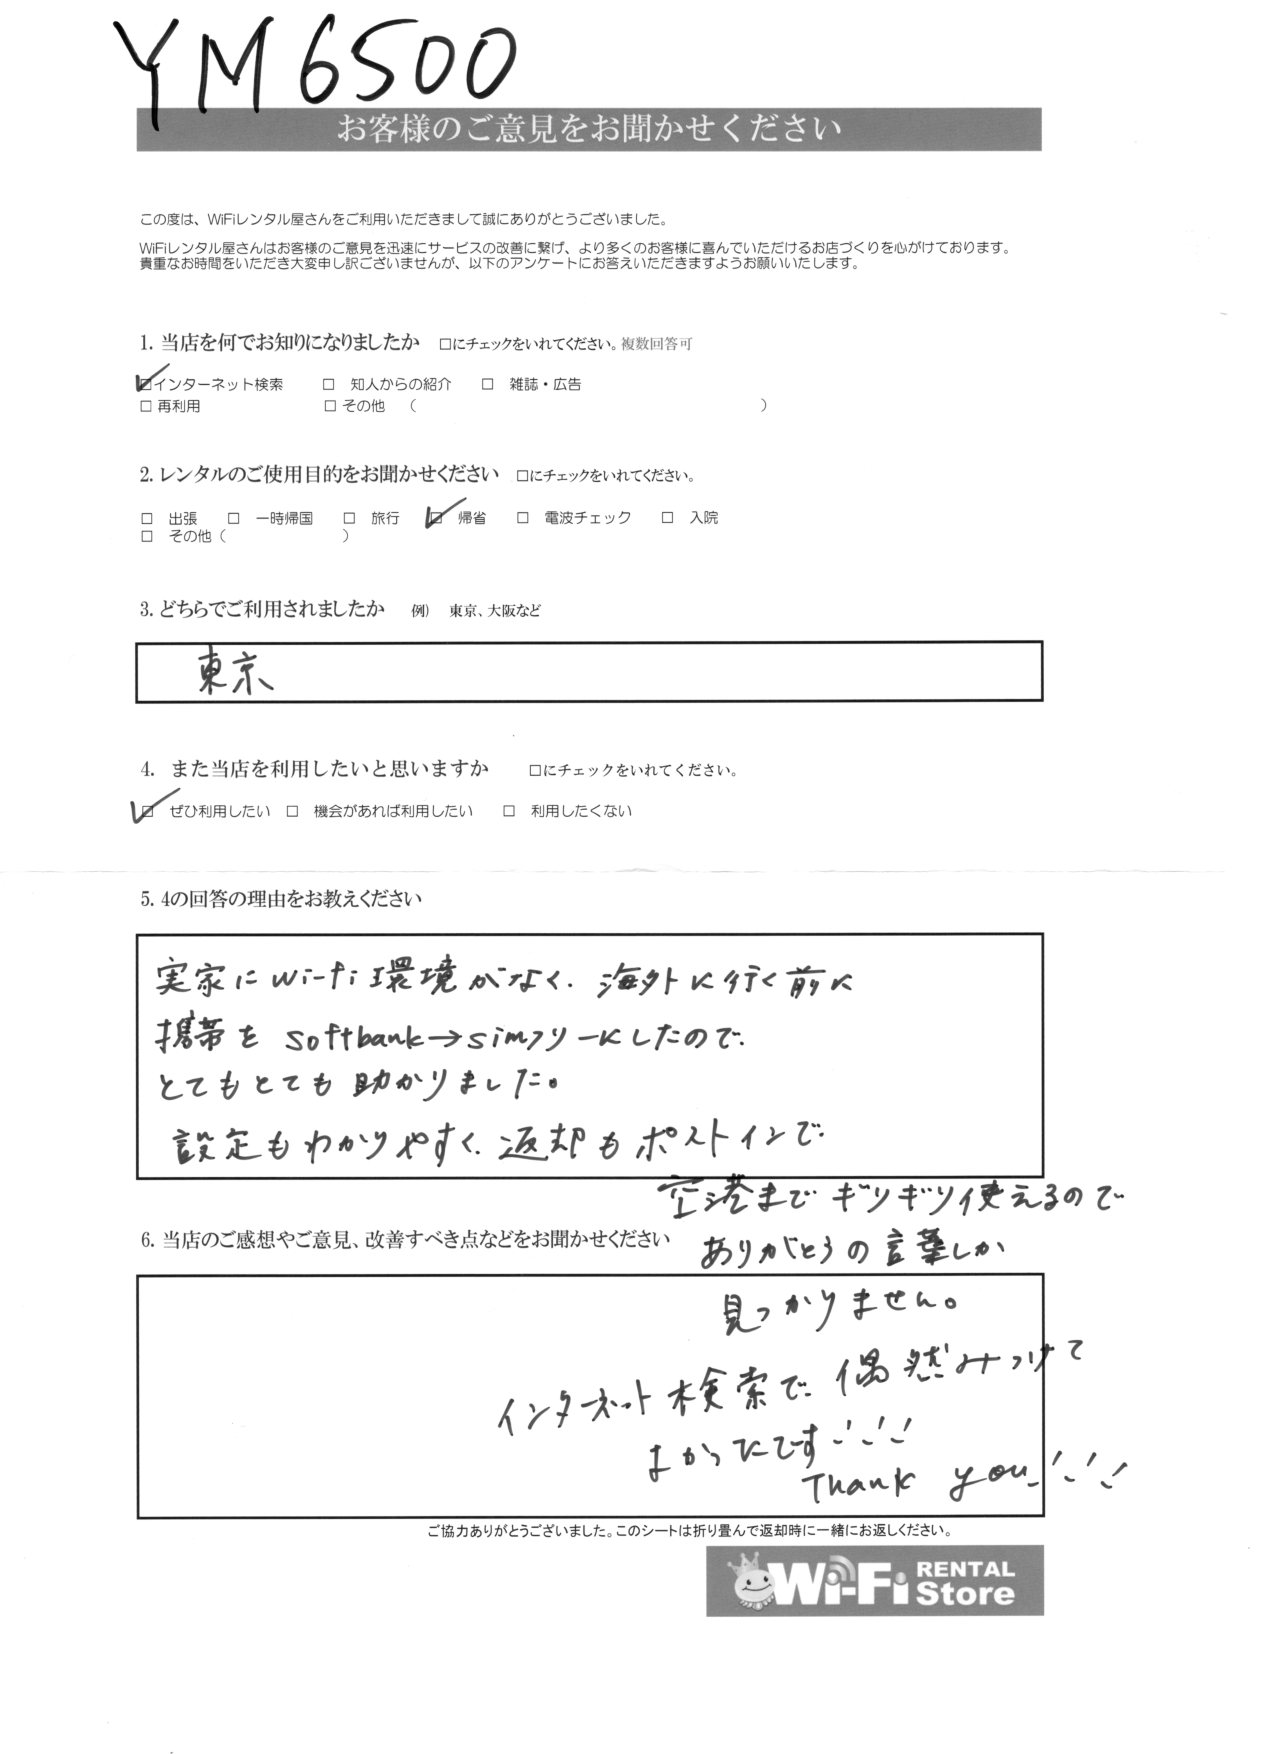 YM6500
お客様のご意見をお聞かせください
この度は、WiFiレンタル屋さんをご利用いただきまして誠にありがとうございました。
WiFiレンタル屋さんはお客様のご意見を迅速にサービスの改善に繋げ、より多くのお客様に喜んでいただけるお店づくりを心がけております。
貴重なお時間をいただき大変申し訳ございませんが、以下のアンケートにお答えいただきますようお願いいたします。
1. 当店を何でお知りになりましたか □にチェックをいれてください。複数回答可
☑インターネット検索 □ 知人からの紹介 □ 雑誌・広告
□ 再利用 □ その他 ( )
2. レンタルのご使用目的をお聞かせください □にチェックをいれてください。
□ 出張 □ 一時帰国 □ 旅行 ☑ 帰省 □ 電波チェック □ 入院
□ その他 ( )
3. どちらでご利用されましたか 例) 東京、大阪など
東京
4. また当店を利用したいと思いますか □にチェックをいれてください。
☑ ぜひ利用したい □ 機会があれば利用したい □ 利用したくない
5. 4の回答の理由をお教えください
実家にwi-fi環境がなく、海外に行く前に
携帯を softbank→simフリーにしたので、
とてもとても助かりました。
設定もわかりやすく、返却もポストインで、
空港までギリギリ使えるので
6. 当店のご感想やご意見、改善すべき点などをお聞かせください
ありがとうの言葉しか
見つかりません。
インターネット検索で、偶然みつけて
よかったです!!!
Thank you!!!
ご協力ありがとうございました。このシートは折り畳んで返却時に一緒にお返しください。
Wi-Fi RENTAL Store